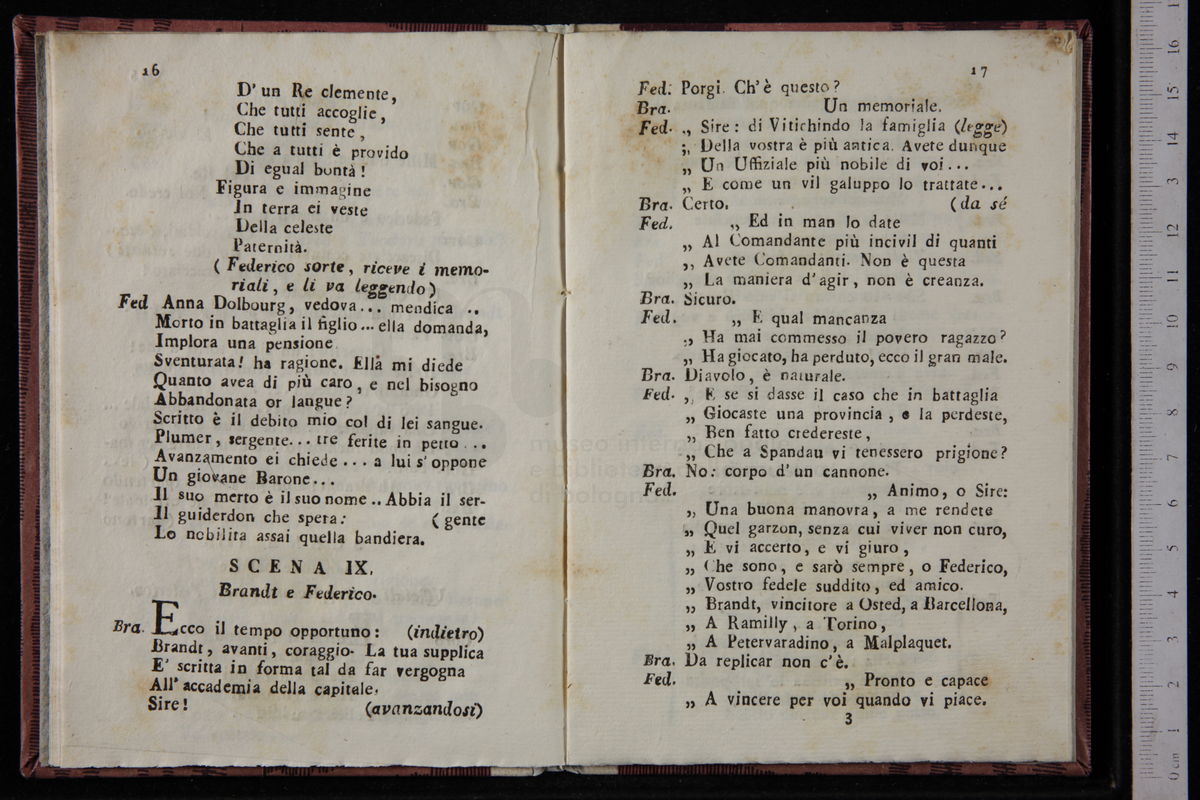 16
D' un Re clemente,
Che tutti accoglie,
Che tutti sente,
Che a tutti è provido
Di egual bontà!
Figura e immagine
In terra ei veste
Della celeste
Paternità.
( Federico sorte, riceve i memo-
riali, e li va leggendo)
Fed Anna Dolbourg, vedova... mendica ..
Morto in battaglia il figlio... ella domanda,
Implora una pensione.
Sventurata! ha ragione. Ella mi diede
Quanto avea di più caro, e nel bisogno
Abbandonata or langue?
Scritto è il debito mio col di lei sangue.
Plumer, sergente... tre ferite in petto...
Avanzamento ei chiede... a lui s' oppone
Un giovane Barone...
Il suo merto è il suo nome.. Abbia il ser-
Il guiderdon che spera: ( gente
Lo nobilita assai quella bandiera.
SCENA IX.
Brandt e Federico.
Bra. Ecco il tempo opportuno: (indietro)
Brandt, avanti, coraggio. La tua supplica
E' scritta in forma tal da far vergogna
All' accademia della capitale.
Sire! (avanzandosi)
17
Fed: Porgi. Ch' è questo?
Bra. Un memoriale.
Fed. „ Sire: di Vitichindo la famiglia (legge)
„ Della vostra è più antica. Avete dunque
„ Un Uffiziale più nobile di voi...
„ E come un vil galuppo lo trattate...
Bra. Certo. (da sé
Fed. „ Ed in man lo date
„ Al Comandante più incivil di quanti
„ Avete Comandanti. Non è questa
„ La maniera d' agir, non è creanza.
Bra. Sicuro.
Fed. „ E qual mancanza
„ Ha mai commesso il povero ragazzo?
„ Ha giocato, ha perduto, ecco il gran male.
Bra. Diavolo, è naturale.
Fed. „ E se si dasse il caso che in battaglia
„ Giocaste una provincia, e la perdeste,
„ Ben fatto credereste,
„ Che a Spandau vi tenessero prigione?
Bra. No: corpo d' un cannone.
Fed. „ Animo, o Sire:
„ Una buona manovra, a me rendete
„ Quel garzon, senza cui viver non curo,
„ E vi accerto, e vi giuro,
„ Che sono, e sarò sempre, o Federico,
„ Vostro fedele suddito, ed amico.
„ Brandt, vincitore a Osted, a Barcellona,
„ A Ramilly, a Torino,
„ A Petervaradino, a Malplaquet.
Bra. Da replicar non c' è.
Fed. „ Pronto e capace
„ A vincere per voi quando vi piace.
3